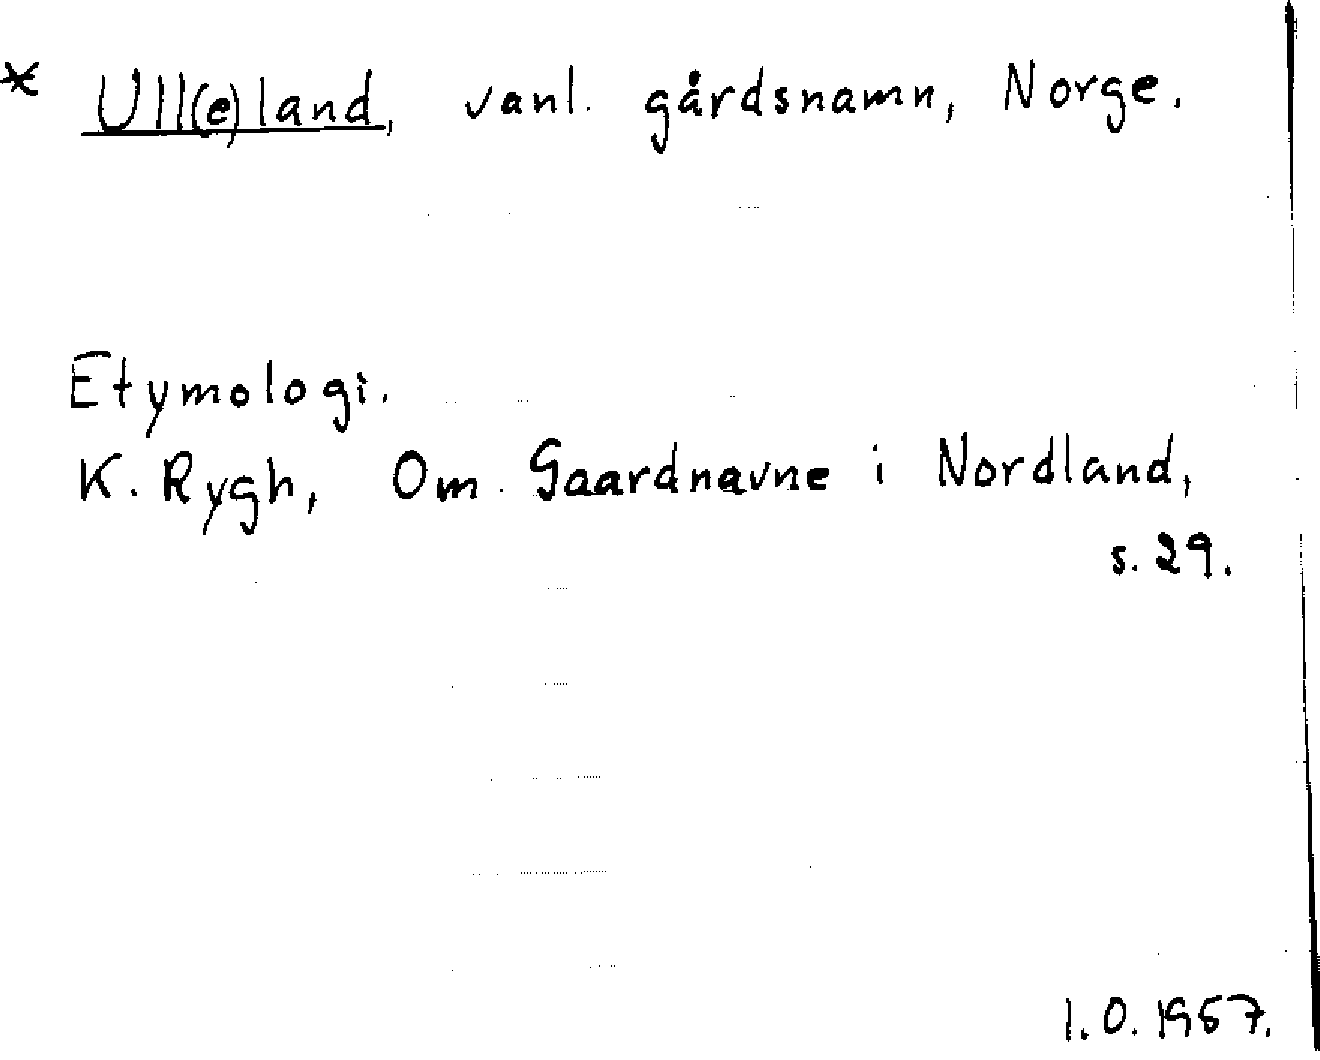 * Ull(e)land, vanl. gårdsnamn, Norge.
Etymologi.
K. Rygh, Om Gaardnavne i Nordland,
s. 29.
I.O. 1957.